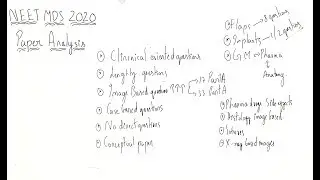 NEET MDS 2020
Paper Analysis
Clinical oriented questions
Lenghty questions
Image Based questions ↑↑↑ → 17 Part A
→ 33 Part A
Case based questions
No direct questions
Conceptual paper
Flaps → 8 questions
Implants → 1/2 questions
GM → Pharma
→ Anatomy
Pharma drugs side effects
Histology image based
Sutures
X-ray based images